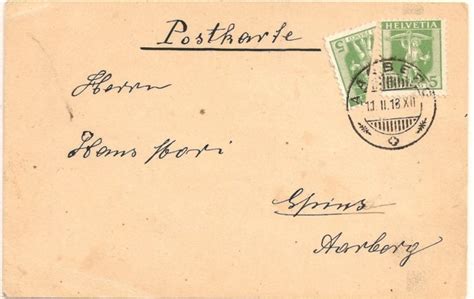 Postkarte
HELVETIA
5
5
AARBERG
11.II.18.XII
Herrn
Hans Hori
Aarberg